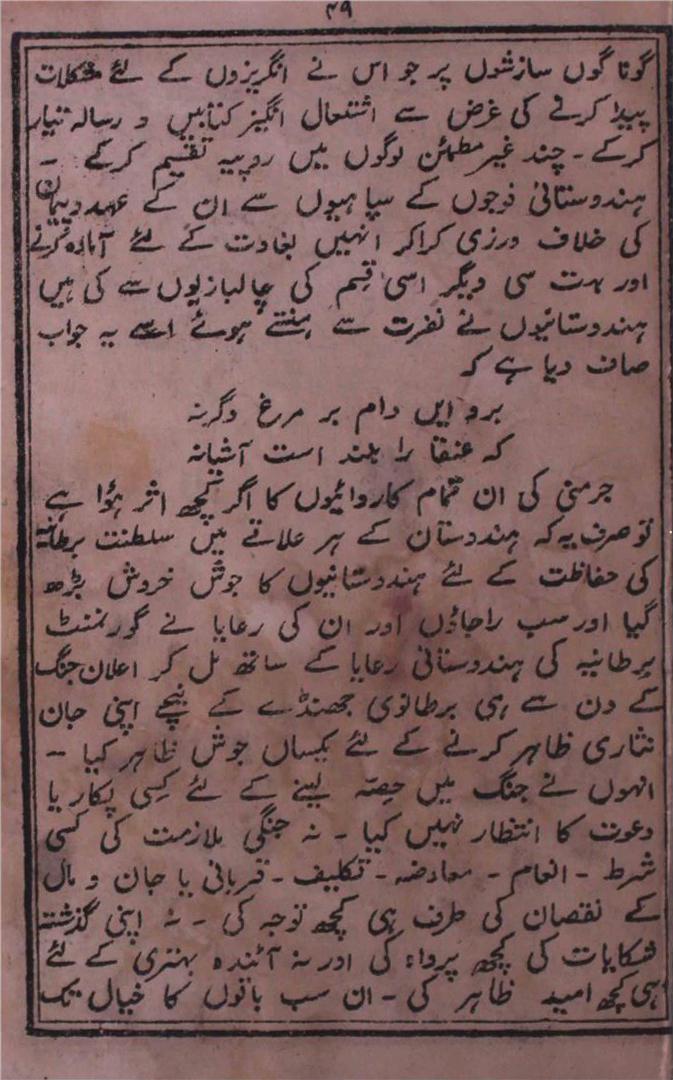 ۴۹
گونا گوں سازشوں پر جو اس نے انگریزوں کے لئے مشکلات
پیدا کرنے کی غرض سے اشتعال انگیز کتابیں و رسالہ تیار
کرکے ۔ چند غیر مطمئن لوگوں میں روپیہ تقسیم کرکے ۔
ہندوستانی فوجوں کے سپاہیوں سے ان کے عہد و پیمان
کی خلاف ورزی کراکر انہیں بغاوت کے لئے آمادہ کرنے
اور بہت سی دیگر اسی قسم کی چالبازیوں سے کی ہیں
ہندوستانیوں نے نفرت سے ہنستے ہوئے اسے یہ جواب
صاف دیا ہے کہ
برو ایں دام بر مرغ دگر نہ
کہ عنقا را بلند است آشیانہ
جرمنی کی ان تمام کاروائیوں کا اگر کچھ اثر ہؤا ہے
تو صرف یہ کہ ہندوستان کے ہر علاقے میں سلطنت برطانیہ
کی حفاظت کے لئے ہندوستانیوں کا جوش خروش بڑھ
گیا اور سب راجاؤں اور ان کی رعایا نے گورنمنٹ
برطانیہ کی ہندوستانی رعایا کے ساتھ مل کر اعلان جنگ
کے دن سے ہی برطانوی جھنڈے کے نیچے اپنی جان
نثاری ظاہر کرنے کے لئے یکساں جوش ظاہر کیا ۔
انہوں نے جنگ میں حصہ لینے کے لئے کسی پکار یا
دعوت کا انتظار نہیں کیا ۔ نہ جنگی ملازمت کی کسی
شرط ۔ انعام ۔ معاوضہ ۔ تکلیف ۔ قربانی یا جان و مال
کے نقصان کی طرف ہی کچھ توجہ کی ۔ نہ اپنی گذشتہ
شکایات کی کچھ پرواہ کی اور نہ آئندہ بہتری کے لئے
ہی کچھ امید ظاہر کی ۔ ان سب باتوں کا خیال تک